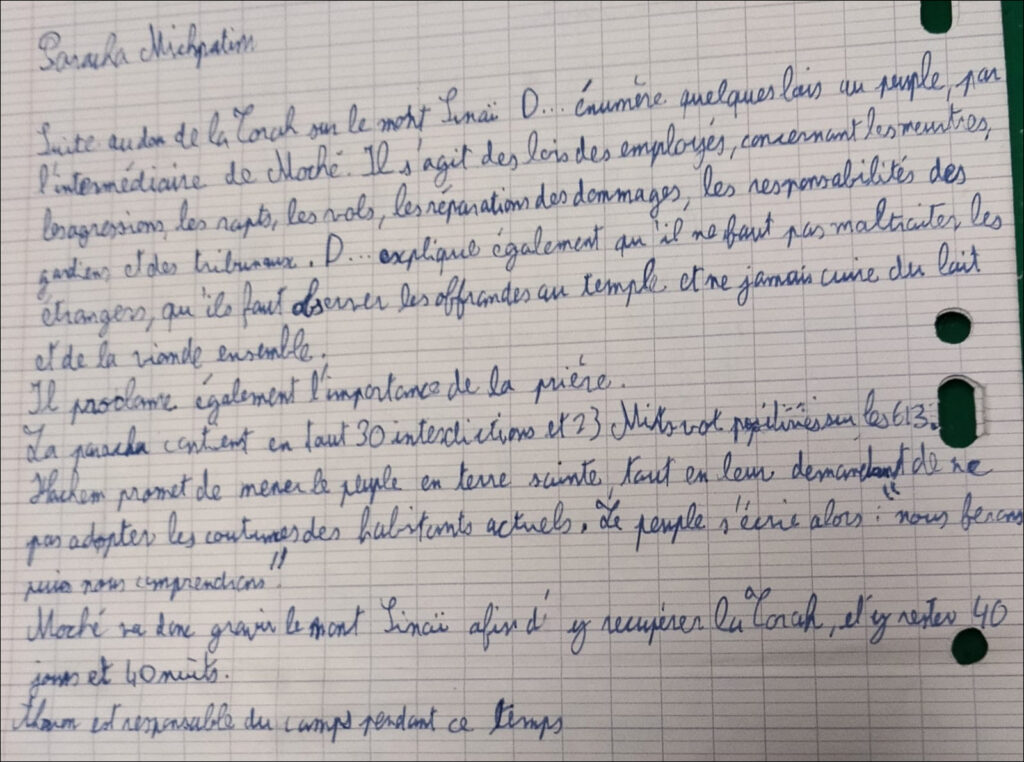 Paracha Michpatim
Suite au don de la Torah sur le mont Sinaï D... énumère quelques lois au peuple, par
l'intermédiaire de Moché. Il s'agit des lois des employés, concernant les meurtres,
les agressions, les rapts, les vols, les réparations des dommages, les responsabilités des
gardiens et des tribunaux. D... explique également qu'il ne faut pas maltraiter les
étrangers, qu'ils faut observer les offrandes au temple et ne jamais cuire du lait
et de la viande ensemble.
Il proclame également l'importance de la prière.
La paracha contient en tout 30 interdictions et 23 Mitsvot positives sur les 613.
Hachem promet de mener le peuple en terre sainte, tout en leur demandant de ne
pas adopter les coutumes des habitants actuels. Le peuple s'écrie alors : "nous ferons
puis nous comprendrons"
Moché va donc gravir le mont Sinaï afin d'y recupérer la Torah, et y rester 40
jours et 40 nuits.
Aharon est responsable du camps pendant ce temps